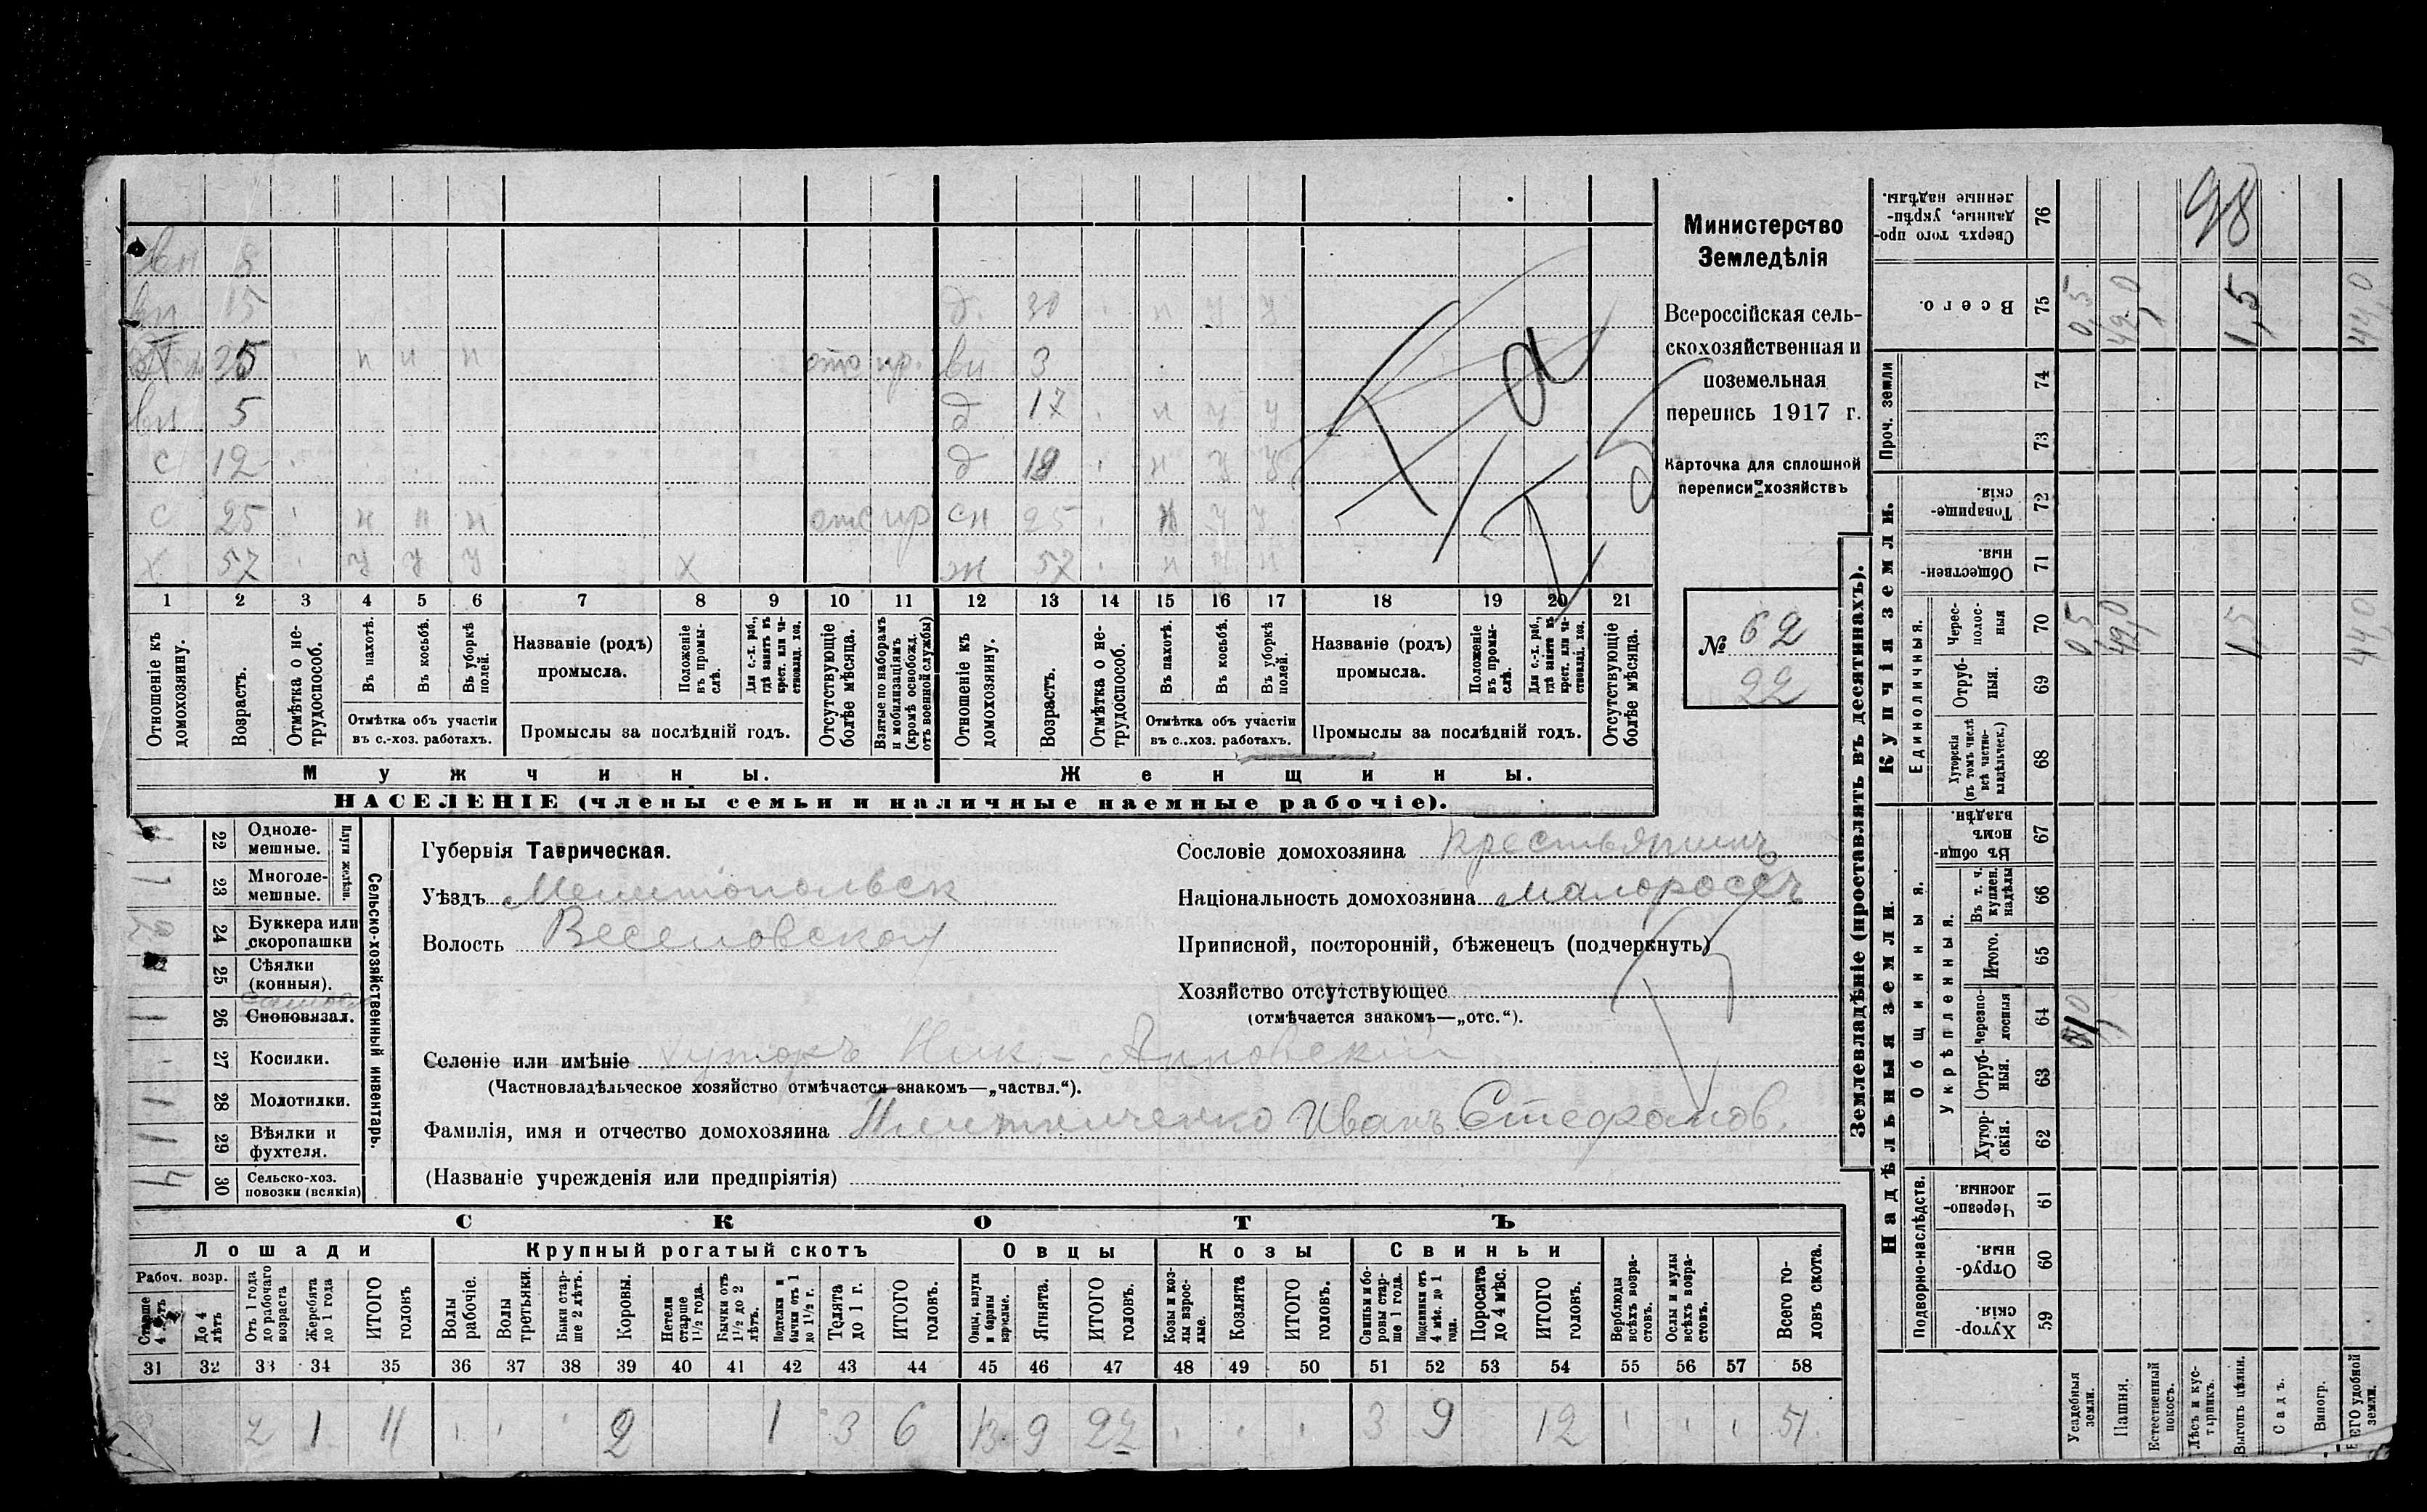 Министерство
Земледѣлія
Всероссійская сель-
скохозяйственная и
поземельная
перепись 1917 г.
Карточка для сплошной
переписи хозяйствъ
№ 62
22
вн 15
вн 5
с 12
с 25 н н н отс
х 57 у у у х
д. 30 н у у
вн 3
д 17 н у у
д н у у
сн 25 у у
ж 57 н у н
1 2 3 4 5 6 7 8 9 10 11 12 13 14 15 16 17 18 19 20 21
Отношеніе къ домохозяину.
Возрастъ.
Отмѣтка о не-трудоспособ.
Въ пахотѣ.
Въ косьбѣ.
Въ уборкѣ полей.
Отмѣтка объ участіи
въ с.-хоз. работахъ.
Названіе (родъ)
промысла.
Положеніе въ промы-слѣ.
Для с.-х. раб., гдѣ занятъ въ крест. или ча-стновлад. хоз.
Промыслы за послѣдній годъ.
Отсутствующіе болѣе мѣсяца.
Взятые по наборамъ и мобилизаціямъ (кромѣ освобожд. отъ военной службы)
Отношеніе къ домохозяину.
Возрастъ.
Отмѣтка о не-трудоспособ.
Въ пахотѣ.
Въ косьбѣ.
Въ уборкѣ полей.
Отмѣтка объ участіи
въ с..хоз. работахъ.
Названіе (родъ)
промысла.
Положеніе въ промы-слѣ.
Для с.-х. раб., гдѣ занятъ въ крест. или ча-стновлад. хоз.
Промыслы за послѣдній годъ.
Отсутствующіе болѣе мѣсяца.
Мужчины. Женщины.
НАСЕЛЕНІЕ (члены семьи и наличные наемные рабочіе).
Сельско-хозяйственный инвентарь.
Плуги желѣзн.
22 Одноле-мешные.
23 Многоле-мешные.
24 Буккера или скоропашки
25 Сѣялки (конныя).
26 Сноповязал.
27 Косилки.
28 Молотилки.
29 Вѣялки и фухтеля.
30 Сельско-хоз. повозки (всякія)
Губернія Таврическая.
Уѣздъ Мелитопольск
Волость Веселовской
Сословіе домохозяина Крестьянинъ
Національность домохозяина малороссъ
Приписной, посторонній, бѣженецъ (подчеркнуть)
Хозяйство отсутствующее
(отмѣчается знакомъ—„отс.“).
Селеніе или имѣніе хуторъ Ник.-Анновскій
(Частновладѣльческое хозяйство отмѣчается знакомъ—„частвл.“).
Фамилія, имя и отчество домохозяина Иванъ Стефанов.
(Названіе учрежденія или предпріятія)
СКОТЪ
Лошади Крупный рогатый скотъ Овцы Козы Свиньи
Рабоч. возр.
Старше 4 лѣтъ
До 4 лѣтъ
Отъ 1 года до рабочаго возраста
Жеребята до 1 года
ИТОГО головъ
Волы рабочіе.
Волы третьяки.
Быки стар-ше 2 лѣтъ.
Коровы.
Нетели старше 1½ года.
Бычки отъ 1½ до 2 лѣтъ.
Подтелки и бычки отъ 1 до 1½ г.
Телята до 1 г.
ИТОГО головъ.
Овцы, валухи и бараны взрослые.
Ягнята.
ИТОГО головъ.
Козы и коз-лы взрос-лые.
Козлята
ИТОГО головъ.
Свиньи и бо-ровы стар-ше 1 года.
Подсвинки отъ 4 мѣс. до 1 года.
Поросята до 4 мѣс.
ИТОГО головъ.
Верблюды всѣхъ возра-стовъ.
Ослы и мулы всѣхъ возра-стовъ.
Всего го-ловъ скота.
31 32 33 34 35 36 37 38 39 40 41 42 43 44 45 46 47 48 49 50 51 52 53 54 55 56 57 58
2 1 11 2 1 3 6 13 9 22 3 9 12 51
Землевладѣніе (проставлять въ десятинахъ).
Надѣльныя земли. Купчія земли. Проч. земли
Подворно-наслѣдств. Общинныя. Единоличныя.
Укрѣпленныя.
59 Хутор-скія.
60 Отруб-ныя.
61 Черезпо-лосныя.
62 Хутор-скія.
63 Отруб-ныя.
64 Черезпо-лосныя
65 Итого.
66 Въ т. ч. куплен. надѣлы
67 Въ общин-номъ владѣн.
68 Хуторскія (въ томъ числѣ всѣ частно-владѣльческ.)
69 Отруб-ныя.
70 Черес-полос-ныя
71 Обществен-ныя.
72 Товарище-скія.
73
74
75 Всего.
76 Сверхъ того про-данные, укрѣп-ленные надѣлы.
Усадебныя земли. 0,5 0,5
Пашня. 42,0 42,0
Естественный покосъ.
Лѣсъ и кус-тарникъ.
Выгонъ цѣлин. 1,5 1,5
Садъ.
Виногр.
ВСЕГО удобной земли. 44,0 44,0
98